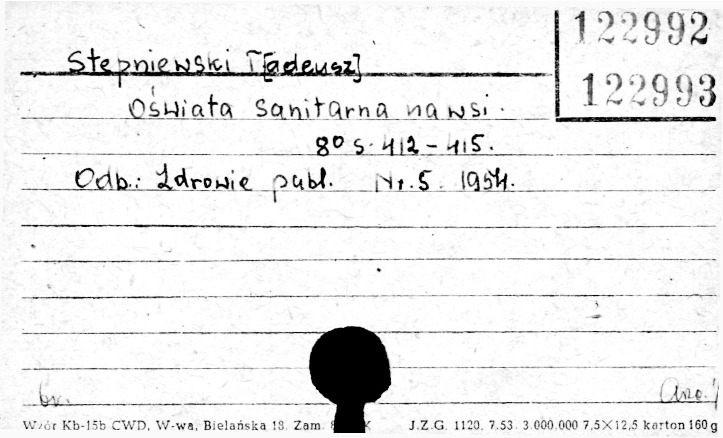 122992
Stępniewski T[adeusz]
122993
Oświata sanitarna na wsi.
8° s. 412-415.
Odb.: Zdrowie publ. Nr. 5. 1954.
br.
Wzór Kb-15b CWD, W-wa, Bielańska 18. Zam. J.Z.G. 1120. 7.53. 3.000.000 7,5×12,5 karton 160 g